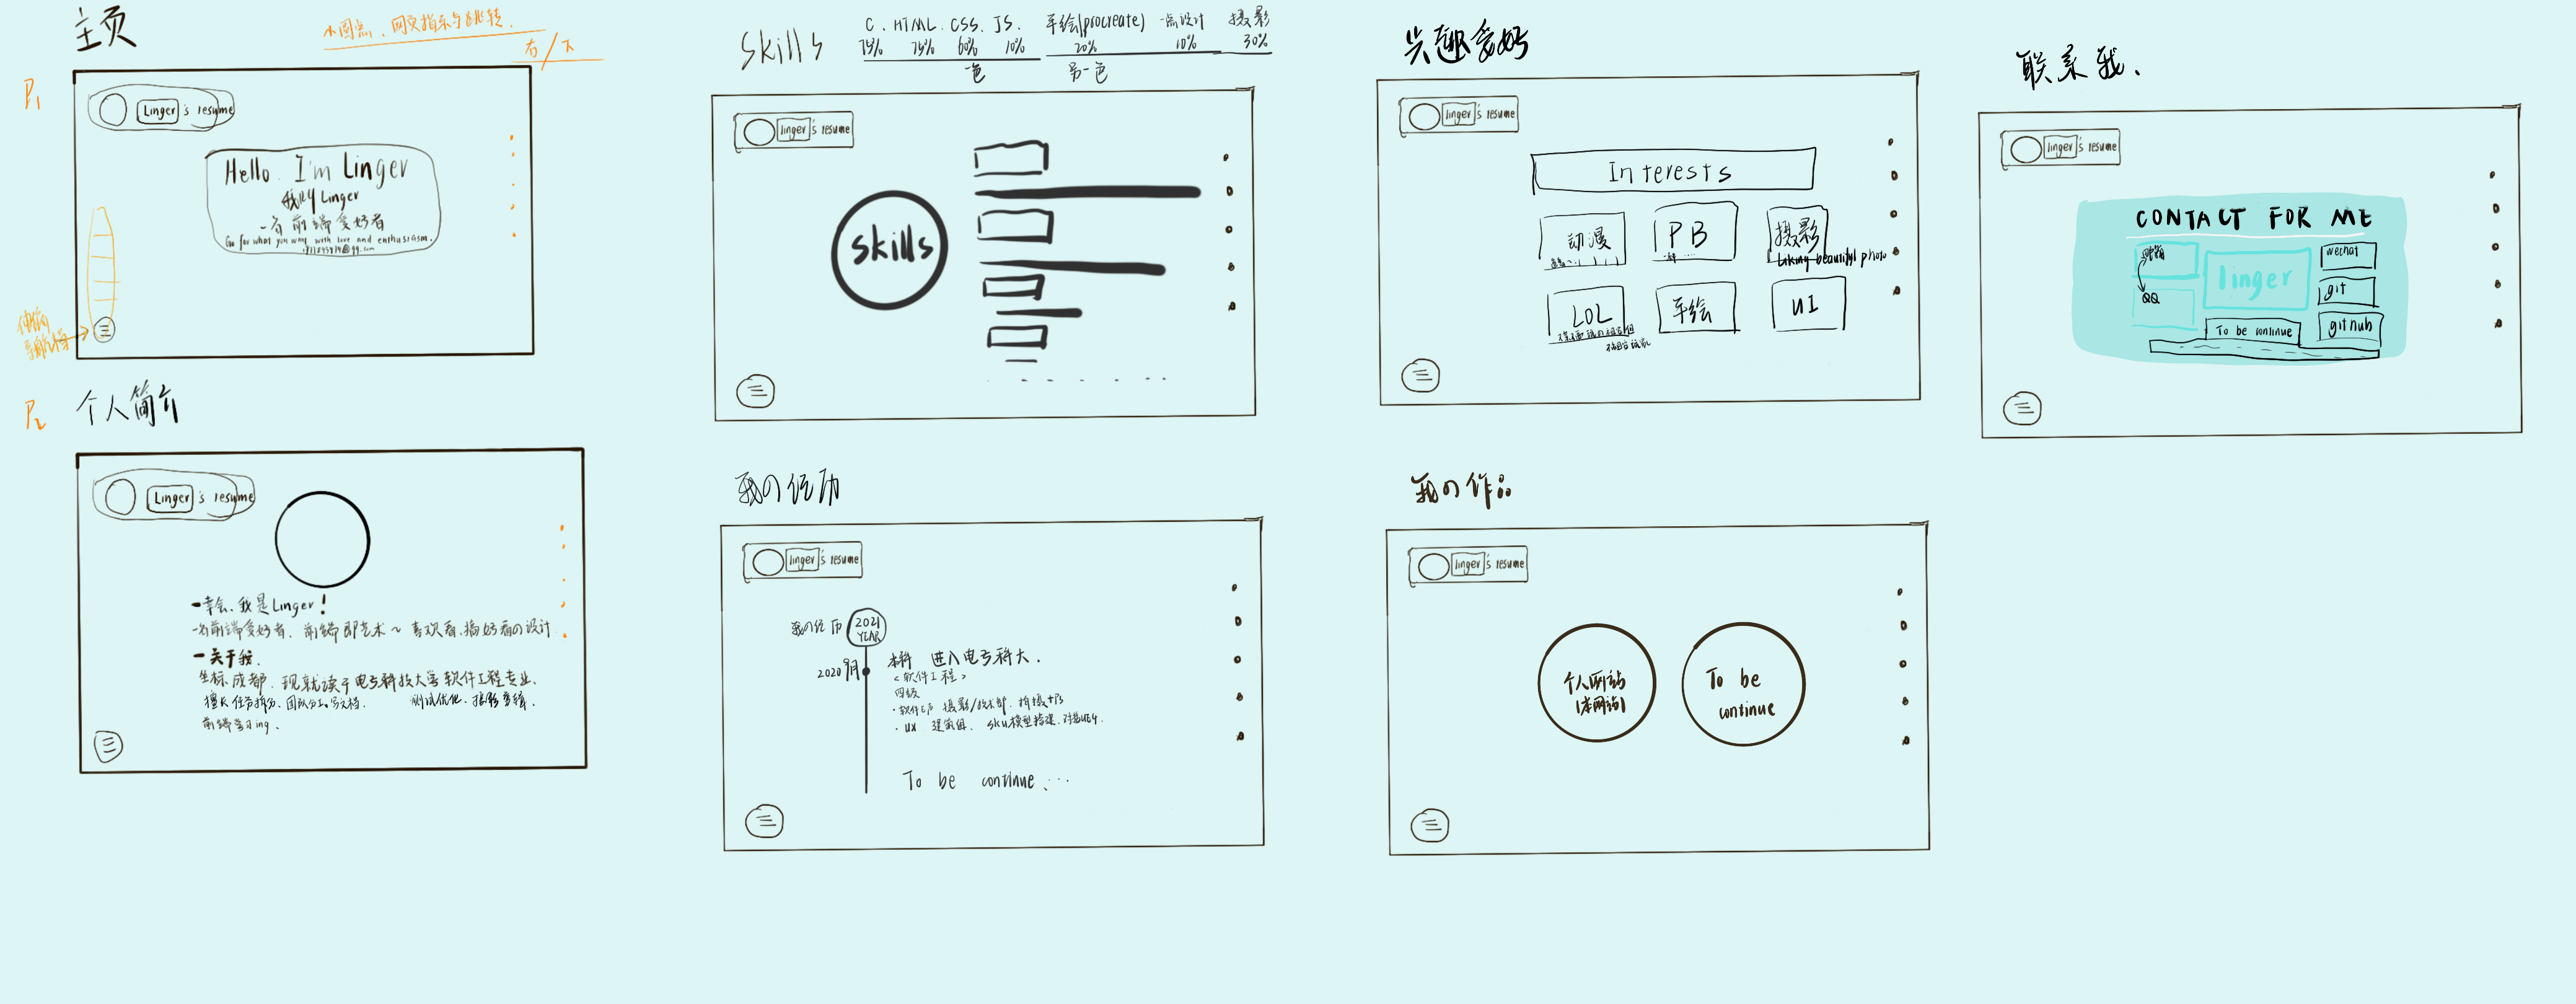 主页
小圆点、网页指示与跳转.
右/下
P1
Linger's resume
Hello. I'm Linger
我叫Linger
一名前端爱好者
Go for what you want with love and enthusiasm.
P2
个人简介
Linger's resume
幸会、我是Linger!
一名前端爱好者、前端即艺术~喜欢看、搞好看の设计.
关于我.
坐标成都. 现就读于电子科技大学软件工程专业.
擅长任务拆分、团队分工、写文档.
测试优化、摄影剪辑.
前端学习ing.
Skills
C. HTML. CSS. JS. 手绘(procreate) 一点设计 摄影
75% 75% 60% 10% 20% 10% 30%
一色 另一色
linger's resume
skills
我の经历
linger's resume
我の经历
2021 YEAR
2020 9月
本科 进入电子科大.
<软件工程>
四级
To be continue....
兴趣爱好
linger's resume
Interests
动漫
PB
摄影
taking beautiful photo
LOL
手绘
UI
我の作品
linger's resume
个人网站
(本网站)
To be continue
联系我.
linger's resume
CONTACT FOR ME
邮箱
QQ
linger
wechat
git
github
To be continue